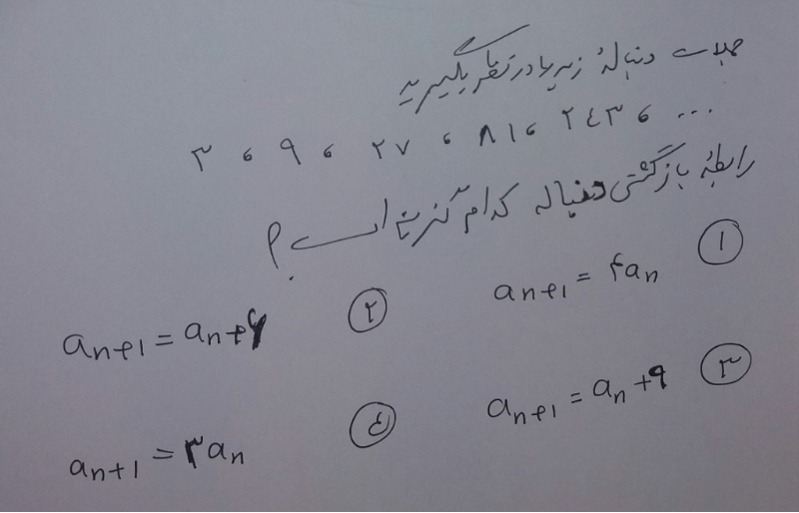 جملات دنبالهٔ زیر را در نظر بگیرید
۳ ، ۹ ، ۲۷ ، ۸۱ ، ۲٤۳ ، ...
رابطهٔ بازگشتی دنباله کدام گزینه است ؟
① aₙ₊₁ = ۴aₙ
② aₙ₊₁ = aₙ+۶
③ aₙ₊₁ = aₙ+۹
④ aₙ₊₁ = ۳aₙ